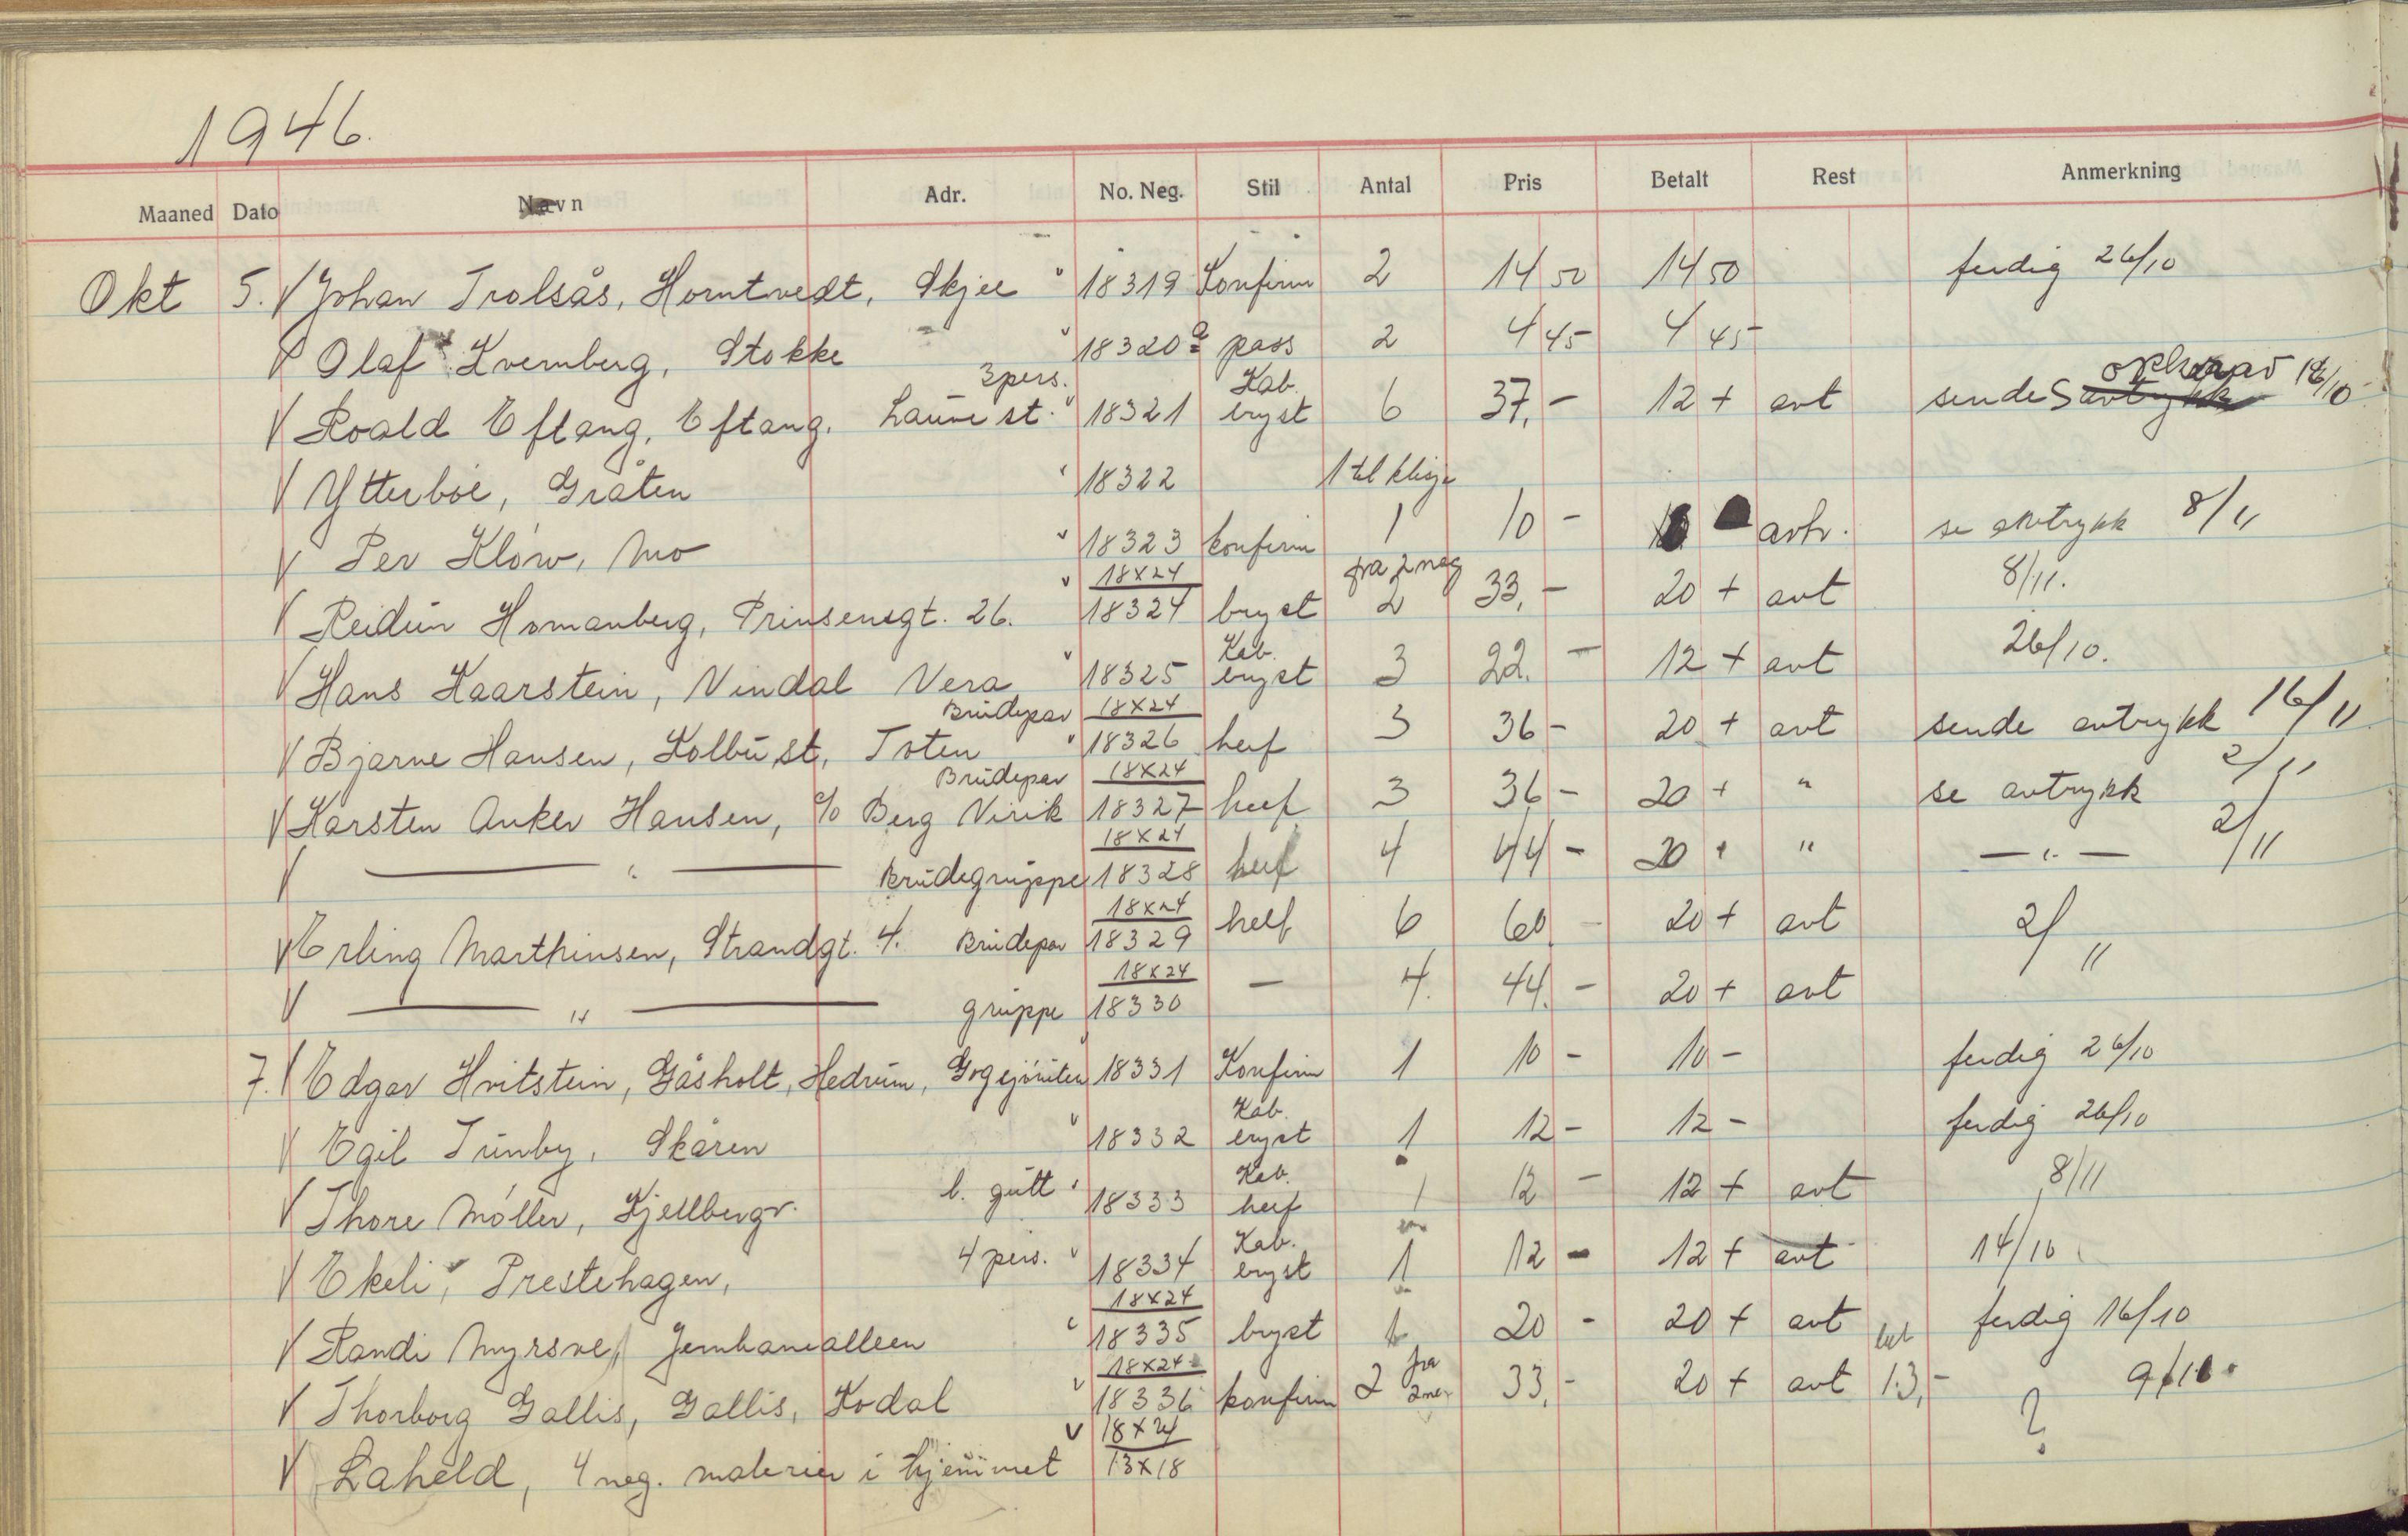 1946.
Maaned Dato Navn Adr. No. Neg. Stil Antal Pris Betalt Rest Anmerkning
Okt 5. V Johan Trolsås, Horntvedt, Skjee " 18319 Konfirm 2 14 50 14 50 ferdig 26/10
V Olaf Kvernberg, Stokke " 18320 a pass 2 4 45 4 45
V Roald Eftang, Eftang, Lauve st. 3 pers. " 18321 Kab. bryst 6 37,- 12 + avt sende 16/10
V Ytterböe, Gråten " 18322 1 til klisje
V Per Klöw, Mo " 18323 konfirm 1 10 - avtr. se avtrykk 8/11
V Reidun Homanberg, Prinsensgt. 26. " 18x24 18324 bryst fra 2 neg 2 33,- 20 + avt 8/11.
V Hans Kaarstein, Vindal Vera " 18325 Kab. bryst 3 22.- 12 + avt 26/10.
V Bjarne Hansen, Kolbu st, Toten Brudepar " 18x24 18326 helf 3 36 - 20 + avt sende avtrykk 16/11
V Karsten Anker Hansen, c/o Berg Virik Brudepar 18x24 18327 helf 3 36 - 20 + " se avtrykk 2/11
V — " — Brudegruppe 18x24 18328 helf 4 44 - 20 + " — " — 2/11
V Erling Marthinsen, Strandgt. 4. Brudepar 18x24 18329 helf 6 60 - 20 + avt 2/11
V — " — gruppe 18x24 18330 — 4. 44. - 20 + avt
7. V Edgar Hvitstein, Gåsholt, Hedrum, " 18331 Konfirm 1 10 - 10 - ferdig 26/10
V Egil Tunby, Skåren " 18332 Kab. bryst 1 12 - 12 - ferdig 26/10
V Thore Möller, Kjellbergv. l. gutt " 18333 Kab. helf 1 12 - 12 + avt 8/11
V Ekeli, Prestehagen, 4 pers. " 18334 Kab. bryst 1 12 - 12 + avt 14/10
V Randi Myrsve, Jernbanealleen " 18x24 18335 bryst 1 20 - 20 + avt ferdig 16/10
V Thorborg Gallis, Gallis, Kodal " 18x24 18336 konfirm 2 fra 2 neg 33,- 20 + avt bet 13,- ? 9/10
V Laheld, 4 neg. malerier i hjemmet V 18x24 13x18